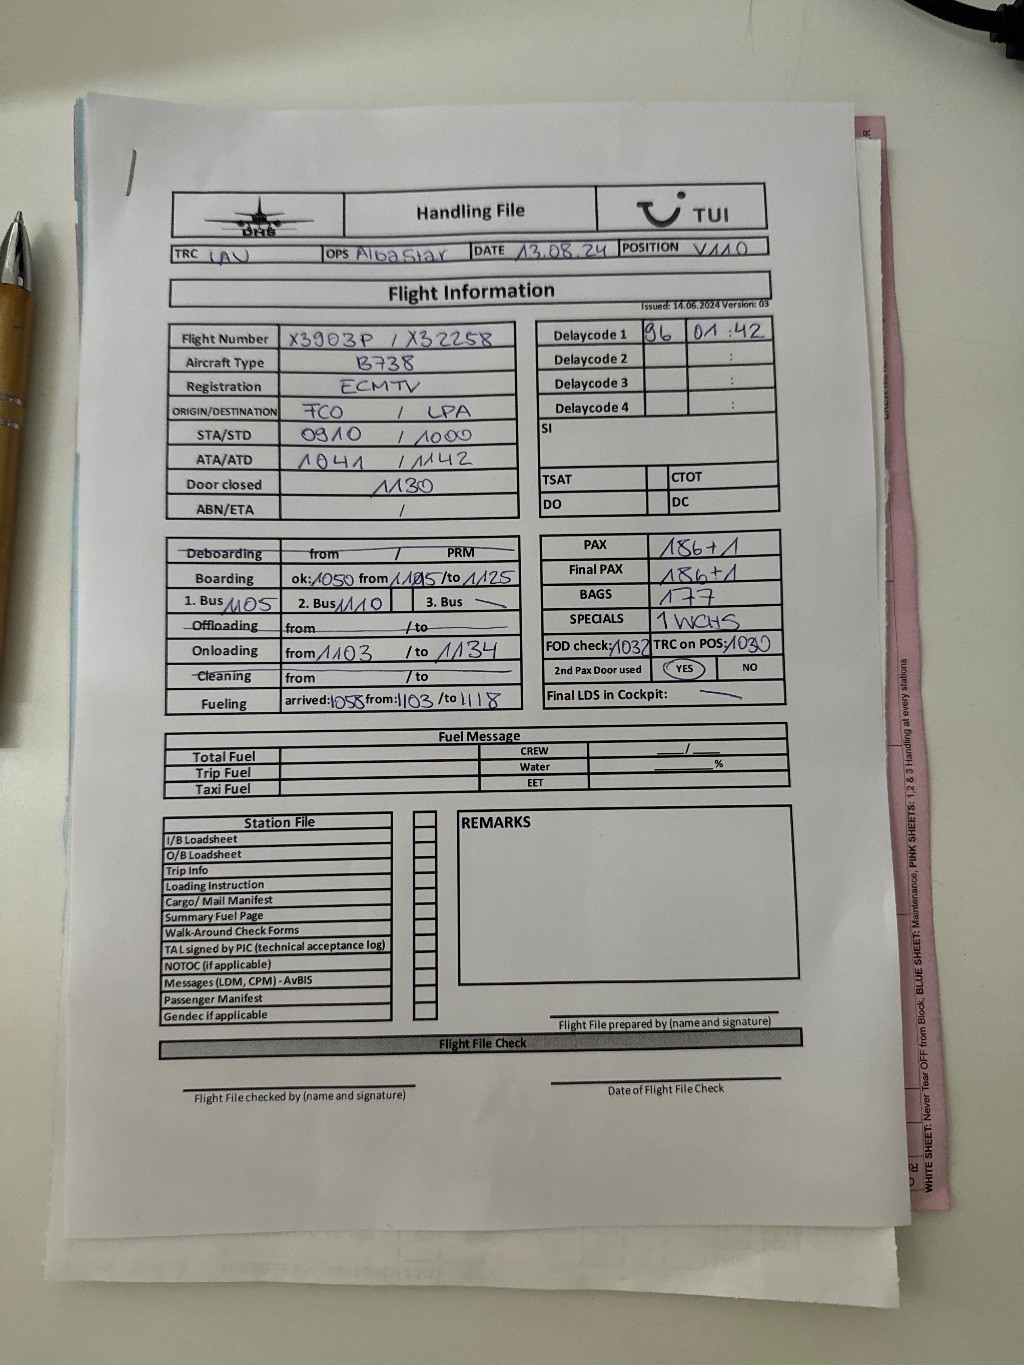 DHS
Handling File
TUI
TRC IAV OPS AlbaStar DATE 13.08.24 POSITION V110
Flight Information
Issued: 14.06.2024 Version: 03
Flight Number X3903P / X32258
Aircraft Type B738
Registration ECMTV
ORIGIN/DESTINATION FCO / LPA
STA/STD 0910 / 1000
ATA/ATD 1041 / 1142
Door closed 1130
ABN/ETA /
Delaycode 1 96 01:42
Delaycode 2 :
Delaycode 3 :
Delaycode 4 :
SI
TSAT CTOT
DO DC
Deboarding from / PRM
Boarding ok: 1050 from /to 1125
1. Bus 1105 2. Bus 1110 3. Bus
Offloading from / to
Onloading from 1103 / to 1134
Cleaning from / to
Fueling arrived: 1058 from: 1103 / to 1118
PAX 186+1
Final PAX 186+1
BAGS 177
SPECIALS 1 WCHS
FOD check: 1032 TRC on POS: 1030
2nd Pax Door used YES NO
Final LDS in Cockpit:
Fuel Message
Total Fuel CREW ___/___
Trip Fuel Water ______%
Taxi Fuel EET
Station File
I/B Loadsheet
O/B Loadsheet
Trip Info
Loading Instruction
Cargo/ Mail Manifest
Summary Fuel Page
Walk-Around Check Forms
TAL signed by PIC (technical acceptance log)
NOTOC (if applicable)
Messages (LDM, CPM) - AvBIS
Passenger Manifest
Gendec if applicable
REMARKS
Flight File prepared by (name and signature)
Flight File Check
Flight File checked by (name and signature)
Date of Flight File Check
WHITE SHEET: Never Tear OFF from Block, BLUE SHEET: Maintenance, PINK SHEETS: 1,2 & 3 Handling at every stations